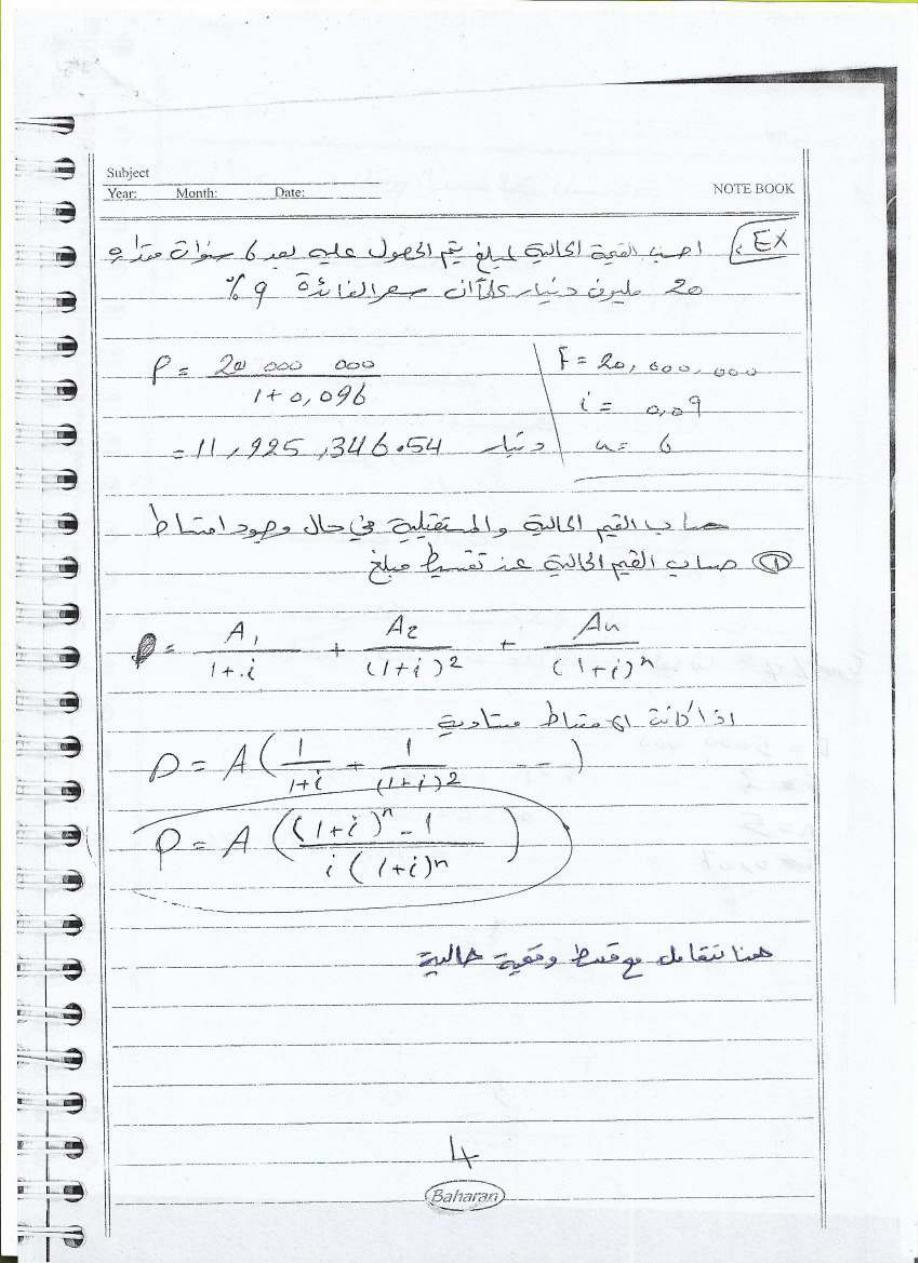 Subject
Year: Month: Date:
NOTE BOOK
Ex. احسب القيمة الحالية لمبلغ يتم الحصول عليه بعد 6 سنوات مقداره
20 مليون دنيار علماً ان سعر الفائدة 9 %
P = 20 000 000 / 1+0,096
F = 20,000,000
i = 0,09
n = 6
= 11,925,346.54 دنيار
حساب القيم الحالية والمستقبلية في حال وجود اقساط
① حساب القيم الحالية عند تقسيط مبلغ
P = A1 / 1+i + A2 / (1+i)2 + An / (1+i)n
اذا كانت الاقساط متساوية
P = A ( 1 / 1+i + 1 / (1+i)2 -- )
P = A ( (1+i)n - 1 / i (1+i)n )
هنا نتعامل مع قسط وقيمة حالية
4
Baharan